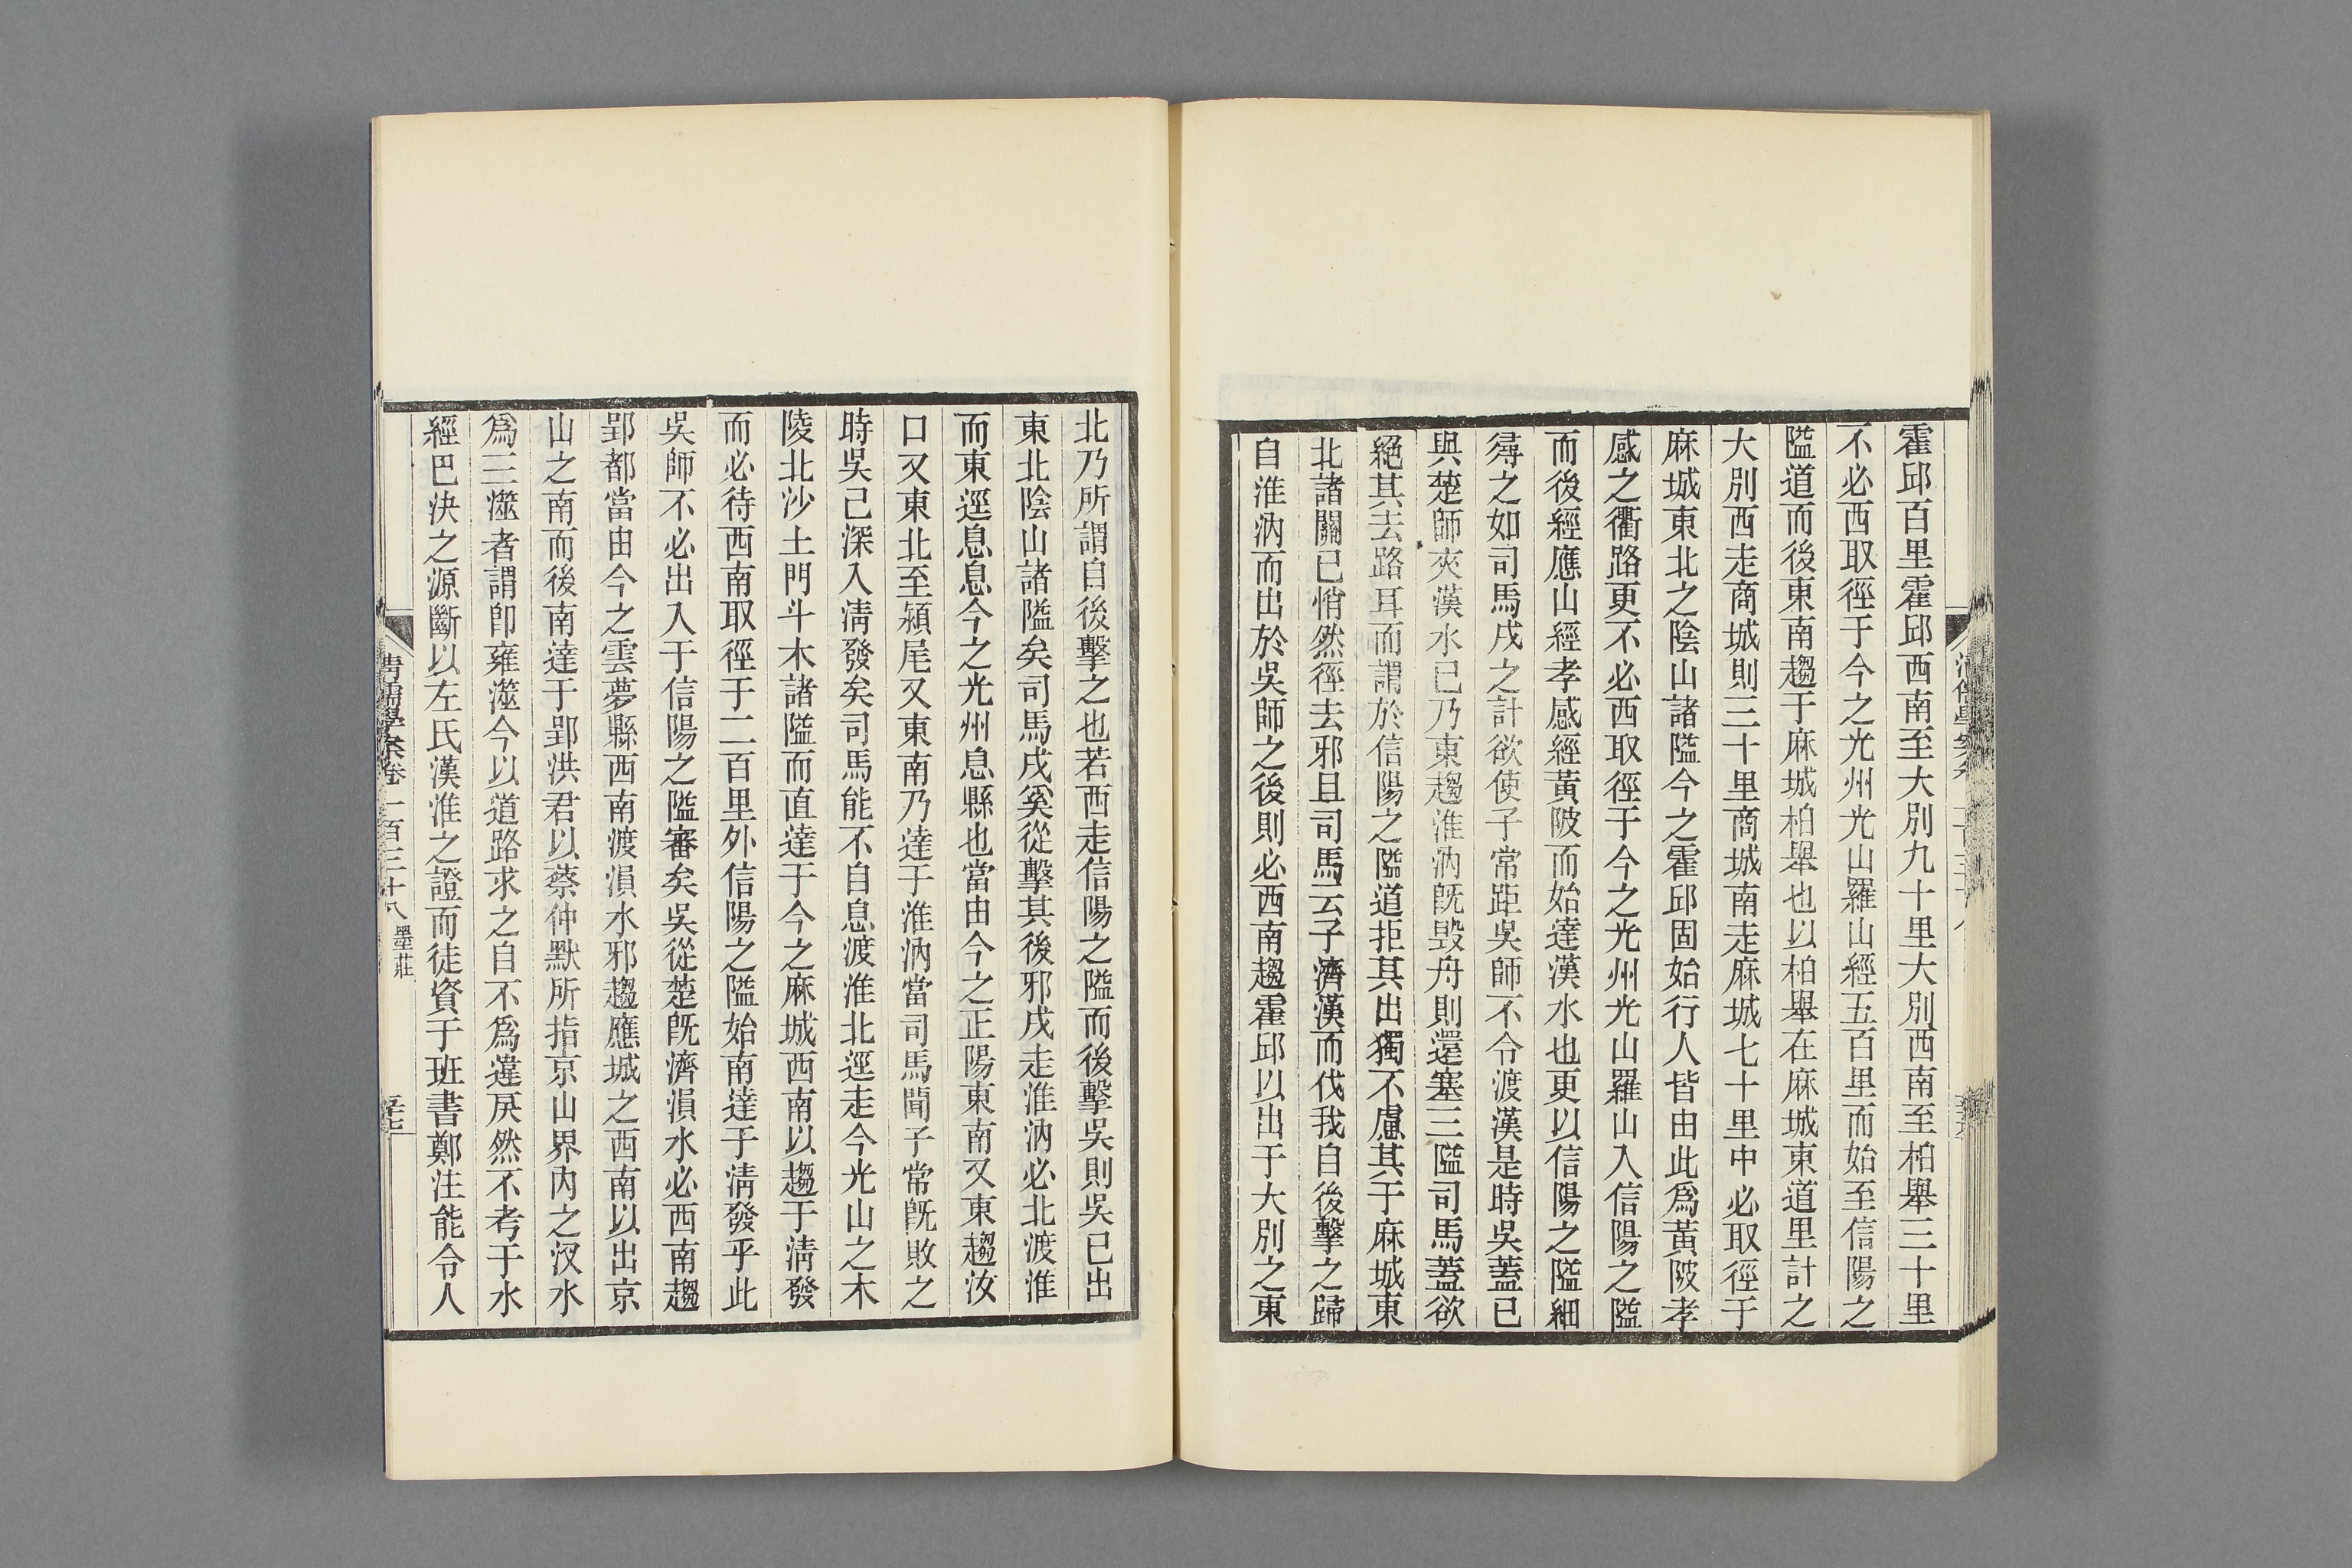 霍邱百里霍邱西南至大別九十里大別西南至柏舉三十里
不必西取徑于今之光州光山羅山經五百里而始至信陽之
隘道而後東南趨于麻城柏舉也以柏舉在麻城東道里計之
大別西走商城則三十里商城南走麻城七十里中必取徑于
麻城東北之陰山諸隘今之霍邱固始行人皆由此爲黃陂孝
感之衢路更不必西取徑于今之光州光山羅山入信陽之隘
而後經應山經孝感經黃陂而始達漢水也更以信陽之隘細
尋之如司馬戌之計欲使子常距吳師不令渡漢是時吳蓋已
與楚師夾漢水已乃東趨淮汭旣毀舟則還塞三隘司馬蓋欲
絕其去路耳而謂於信陽之隘道拒其出獨不慮其于麻城東
北諸關已悄然徑去邪且司馬云子濟漢而伐我自後擊之歸
自淮汭而出於吳師之後則必西南趨霍邱以出于大別之東
北乃所謂自後擊之也若西走信陽之隘而後擊吳則吳已出
東北陰山諸隘矣司馬戌奚從擊其後邪戌走淮汭必北渡淮
而東逕息息今之光州息縣也當由今之正陽東南又東趨汝
口又東北至潁尾又東南乃達于淮汭當司馬聞子常旣敗之
時吳已深入清發矣司馬能不自息渡淮北逕走今光山之木
陵北沙土門斗木諸隘而直達于今之麻城西南以趨于清發
而必待西南取徑于二百里外信陽之隘始南達于清發乎此
吳師不必出入于信陽之隘審矣吳從楚旣濟溳水必西南趨
郢都當由今之雲夢縣西南渡溳水邪趨應城之西南以出京
山之南而後南達于郢洪君以蔡仲默所指京山界內之汊水
爲三澨者謂卽雍澨今以道路求之自不爲違戾然不考于水
經巴決之源斷以左氏漢淮之證而徒資于班書鄭注能令人
清儒學案卷二百三十八 墨莊